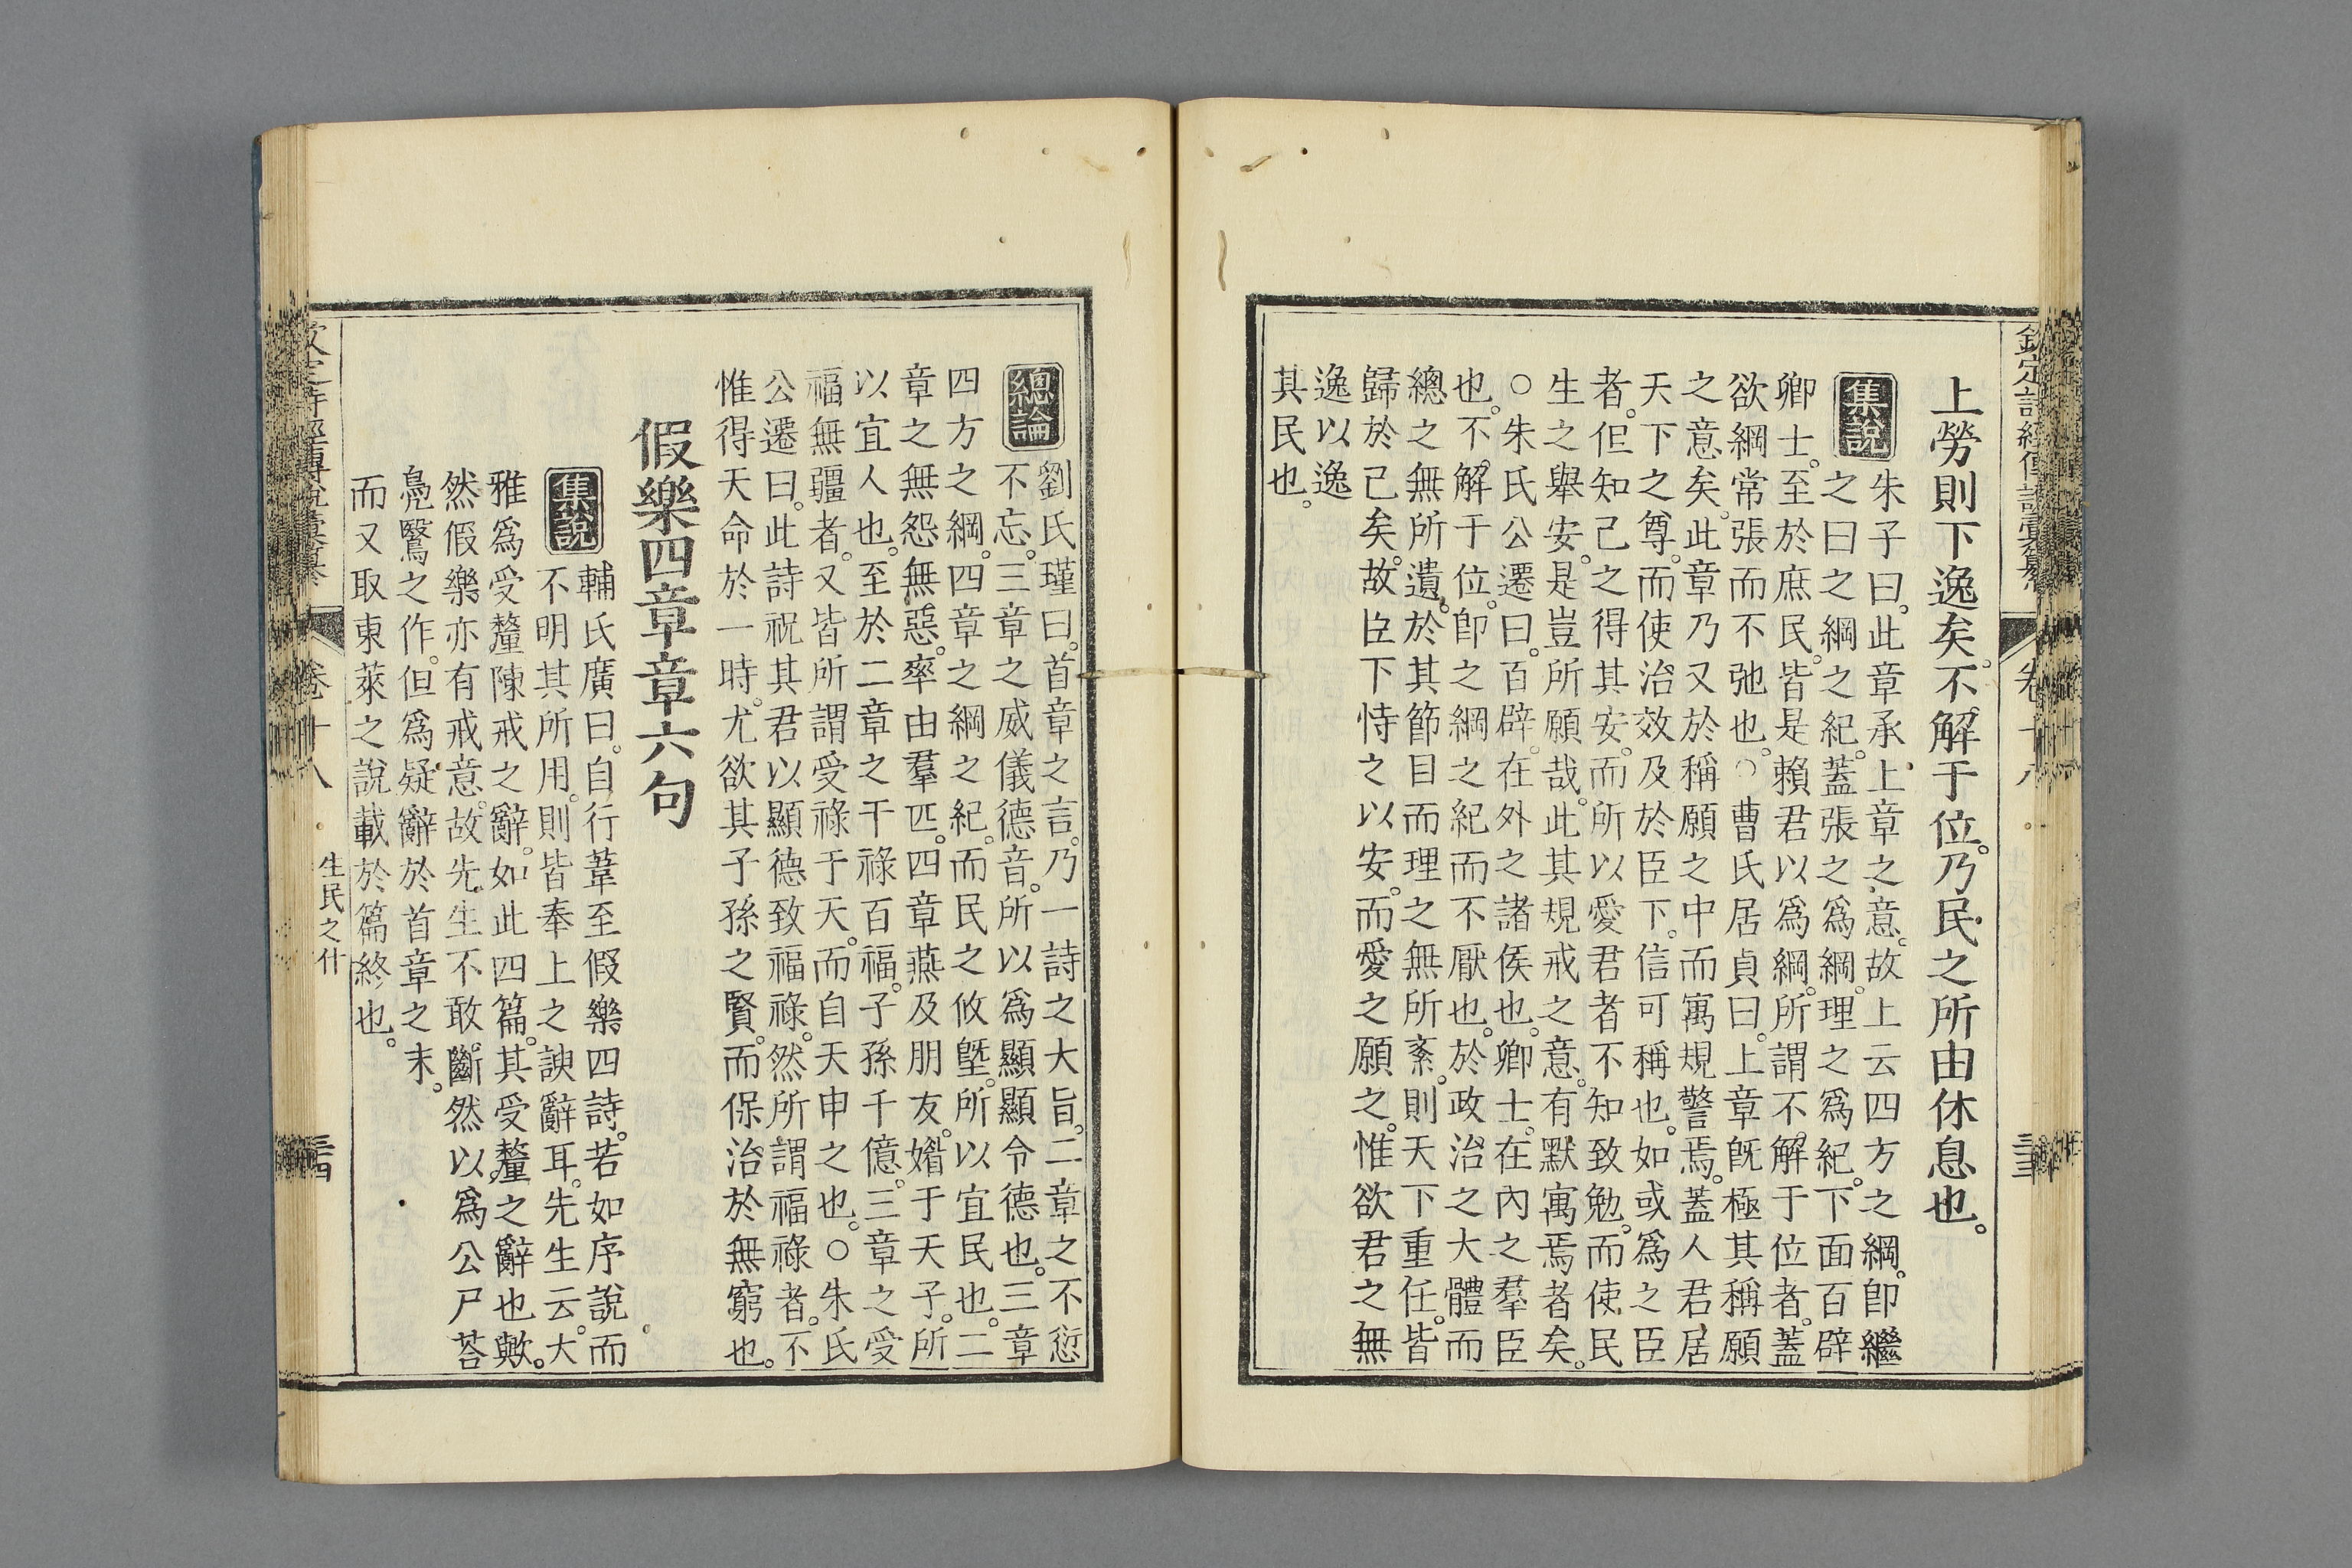 欽定詩經傳說彙纂 卷十八 三十三
上勞則下逸矣不解于位乃民之所由休息也
集說
朱子曰此章承上章之意故上云四方之綱即繼
之曰之綱之紀蓋張之爲綱理之爲紀下面百辟
卿士至於庶民皆是賴君以爲綱所謂不解于位者蓋
欲綱常張而不弛也○曹氏居貞曰上章旣極其稱願
之意矣此章乃又於稱願之中而寓規警焉蓋人君居
天下之尊而使治效及於臣下信可稱也如或爲之臣
者但知己之得其安而所以愛君者不知致勉而使民
生之舉安是豈所願哉此其規戒之意有默寓焉者矣
○朱氏公遷曰百辟在外之諸侯也卿士在內之羣臣
也不解于位卽之綱之紀而不厭也於政治之大體而
總之無所遺於其節目而理之無所紊則天下重任皆
歸於己矣故臣下恃之以安而愛之願之惟欲君之無
逸以逸
其民也
總論
劉氏瑾曰首章之言乃一詩之大旨二章之不愆
不忘三章之威儀德音所以爲顯顯令德也三章
四方之綱四章之綱之紀而民之攸墍所以宜民也二
章之無怨無惡率由羣匹四章燕及朋友媚于天子所
以宜人也至於二章之干祿百福子孫千億三章之受
福無疆者又皆所謂受祿于天而自天申之也○朱氏
公遷曰此詩祝其君以顯德致福祿然所謂福祿者不
惟得天命於一時尤欲其子孫之賢而保治於無窮也
假樂四章章六句
集說
輔氏廣曰自行葦至假樂四詩若如序說而
不明其所用則皆奉上之諛辭耳先生云大
雅爲受釐陳戒之辭如此四篇其受釐之辭也歟
然假樂亦有戒意故先生不敢斷然以爲公尸荅
鳧鷖之作但爲疑辭於首章之末
而又取東萊之說載於篇終也
欽定詩經傳說彙纂 卷十八 生民之什 三十四